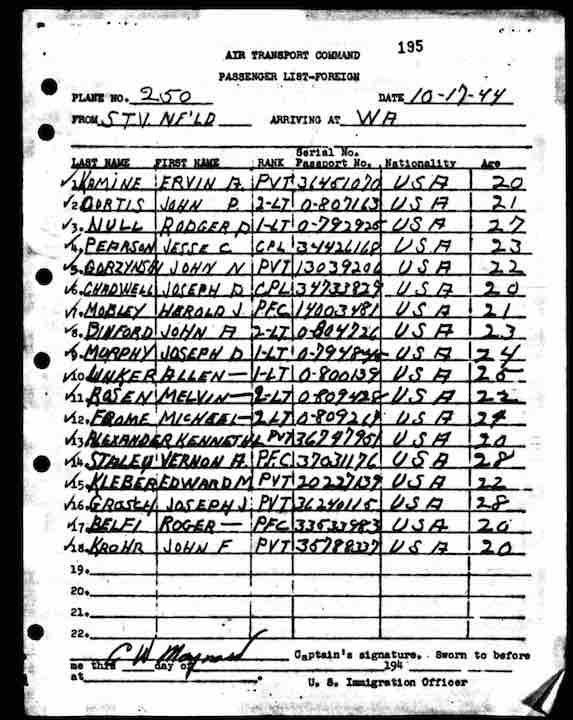 195
AIR TRANSPORT COMMAND
PASSENGER LIST-FOREIGN
PLANE NO. 250 DATE 10-17-44
FROM STV. NF'LD ARRIVING AT WA
Serial No.
LAST NAME FIRST NAME RANK Passport No. Nationality Age
1. KAMINE ERVIN A. PVT 36451070 USA 20
2. JOHN P. 2-LT 0-807163 USA 21
3. NULL RODGER D 1-LT 0-792925 USA 27
4. PEARSON JESSE C CPL 34426168 USA 23
5. GORZYNSKI JOHN N PVT 13039206 USA 22
6. CHADWELL JOSEPH D CPL 34733829 USA 20
7. MOBLEY HEROLD J PFC 14003481 USA 21
8. BINFORD JOHN A 2-LT 0-804726 USA 23
9. MORPHY JOSEPH D 1-LT USA 24
10. UNKER ALLEN — 1-LT 0-800139 USA 25
11. ROSEN MELVIN — 2-LT 0-809428 USA 22
12. FROME MICHEEL — 2-LT USA 24
13. ALEXANDER KENNETH L PVT 36797951 USA 20
14. STALEY VERNON A. PFC 37031176 USA 28
15. KLEBER EDWARD M PVT 20227139 USA 22
16. GROSCH JOSEPH J PVT 36240115 USA 28
17. BELFI ROGER — PFC 33533983 USA 20
18. KROHR JOHN F PVT 35788337 USA 20
19.
20.
21.
22.
C W Maynard Captain's signature. Sworn to before
me this day of 194
at .
U. S. Immigration Officer